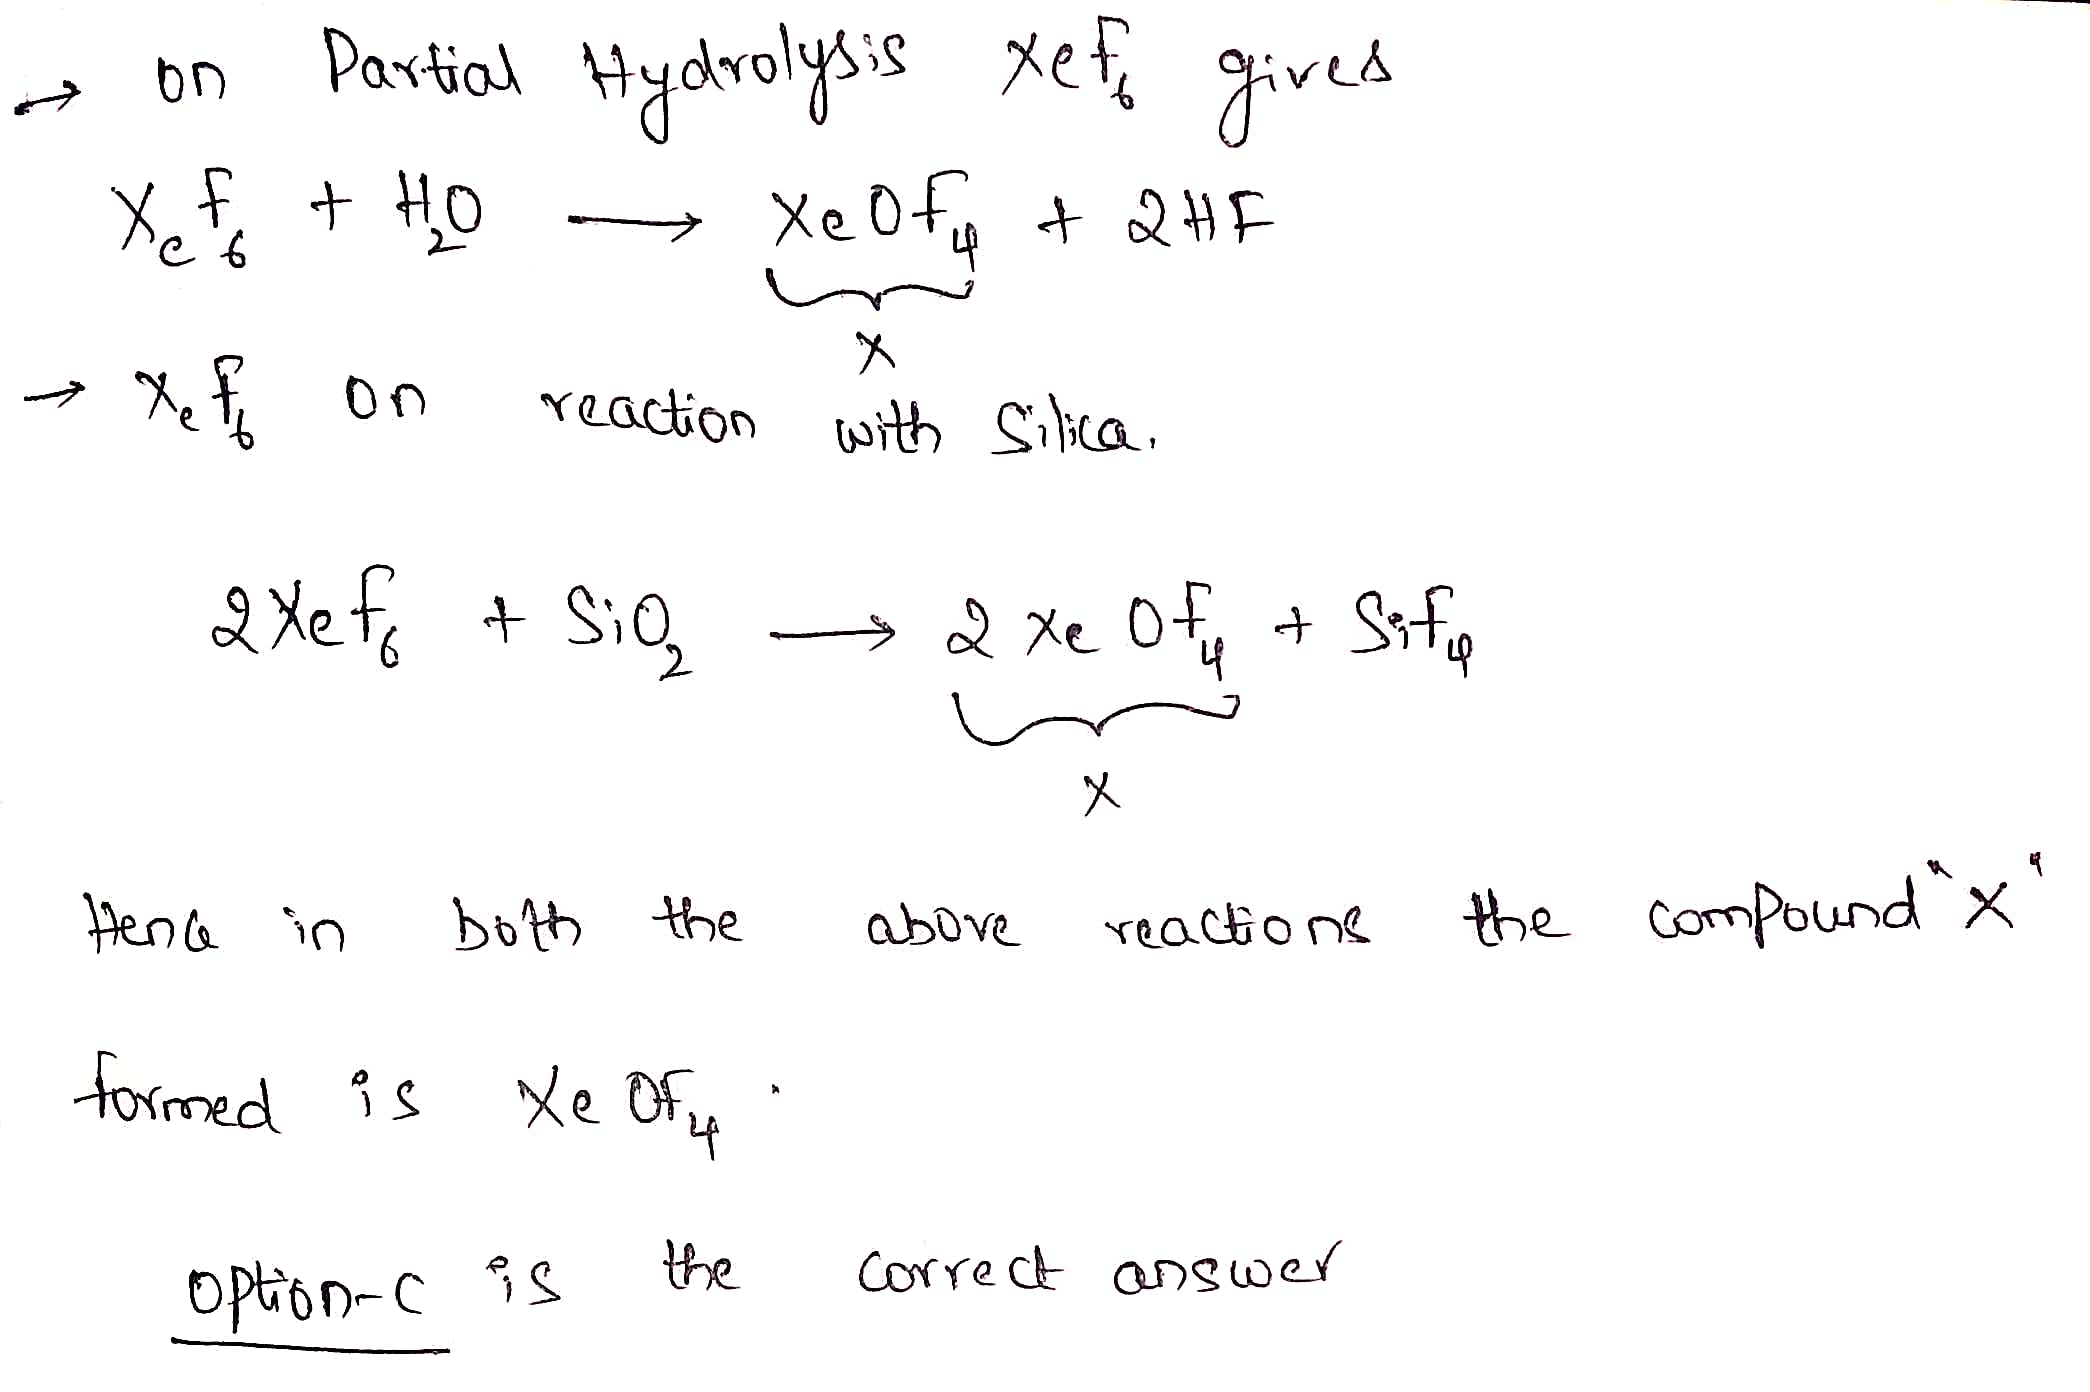 → on Partial Hydrolysis XeF₆ gives
XeF₆ + H₂O ⟶ XeOF₄ + 2HF
X
→ XeF₆ on reaction with Silica.
2XeF₆ + SiO₂ ⟶ 2XeOF₄ + SiF₄
X
Hence in both the above reactions the compound "X"
formed is XeOF₄.
option-C is the correct answer